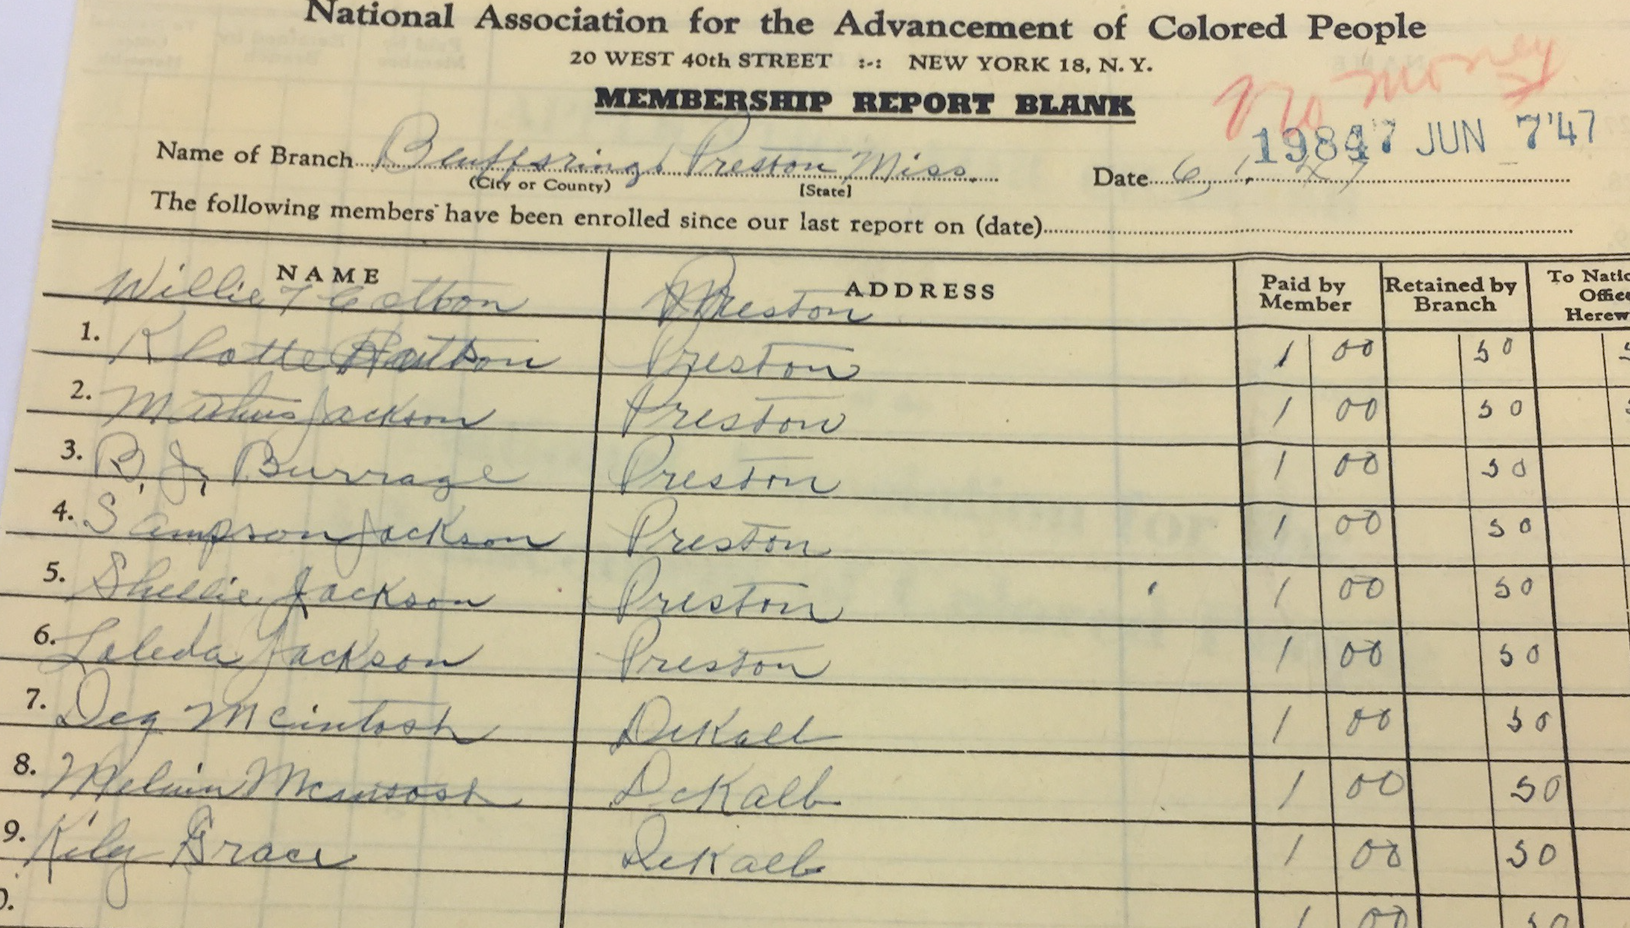 National Association for the Advancement of Colored People
20 WEST 40th STREET :-: NEW YORK 18, N. Y.
No money
MEMBERSHIP REPORT BLANK
1984 7 JUN 7 '47
Name of Branch Bluffsrings Preston Miss. Date 6, 1. 47
(City or County) [State]
The following members have been enrolled since our last report on (date)
NAME ADDRESS Paid by Member Retained by Branch To Natio Office Herew
Willie T Cotton Preston
1. Klatte Preston 1 00 50
2. Jackson Preston 1 00 50
3. R. J. Burrage Preston 1 00 50
4. Sampson Jackson Preston 1 00 50
5. Shellie Jackson Preston 1 00 50
6. Laleda Jackson Preston 1 00 50
7. Deg Mcintosh DeKalb 1 00 50
8. Melvin Mcintosh DeKalb 1 00 50
9. Kily Grace DeKalb 1 00 50
0. 1 00 50